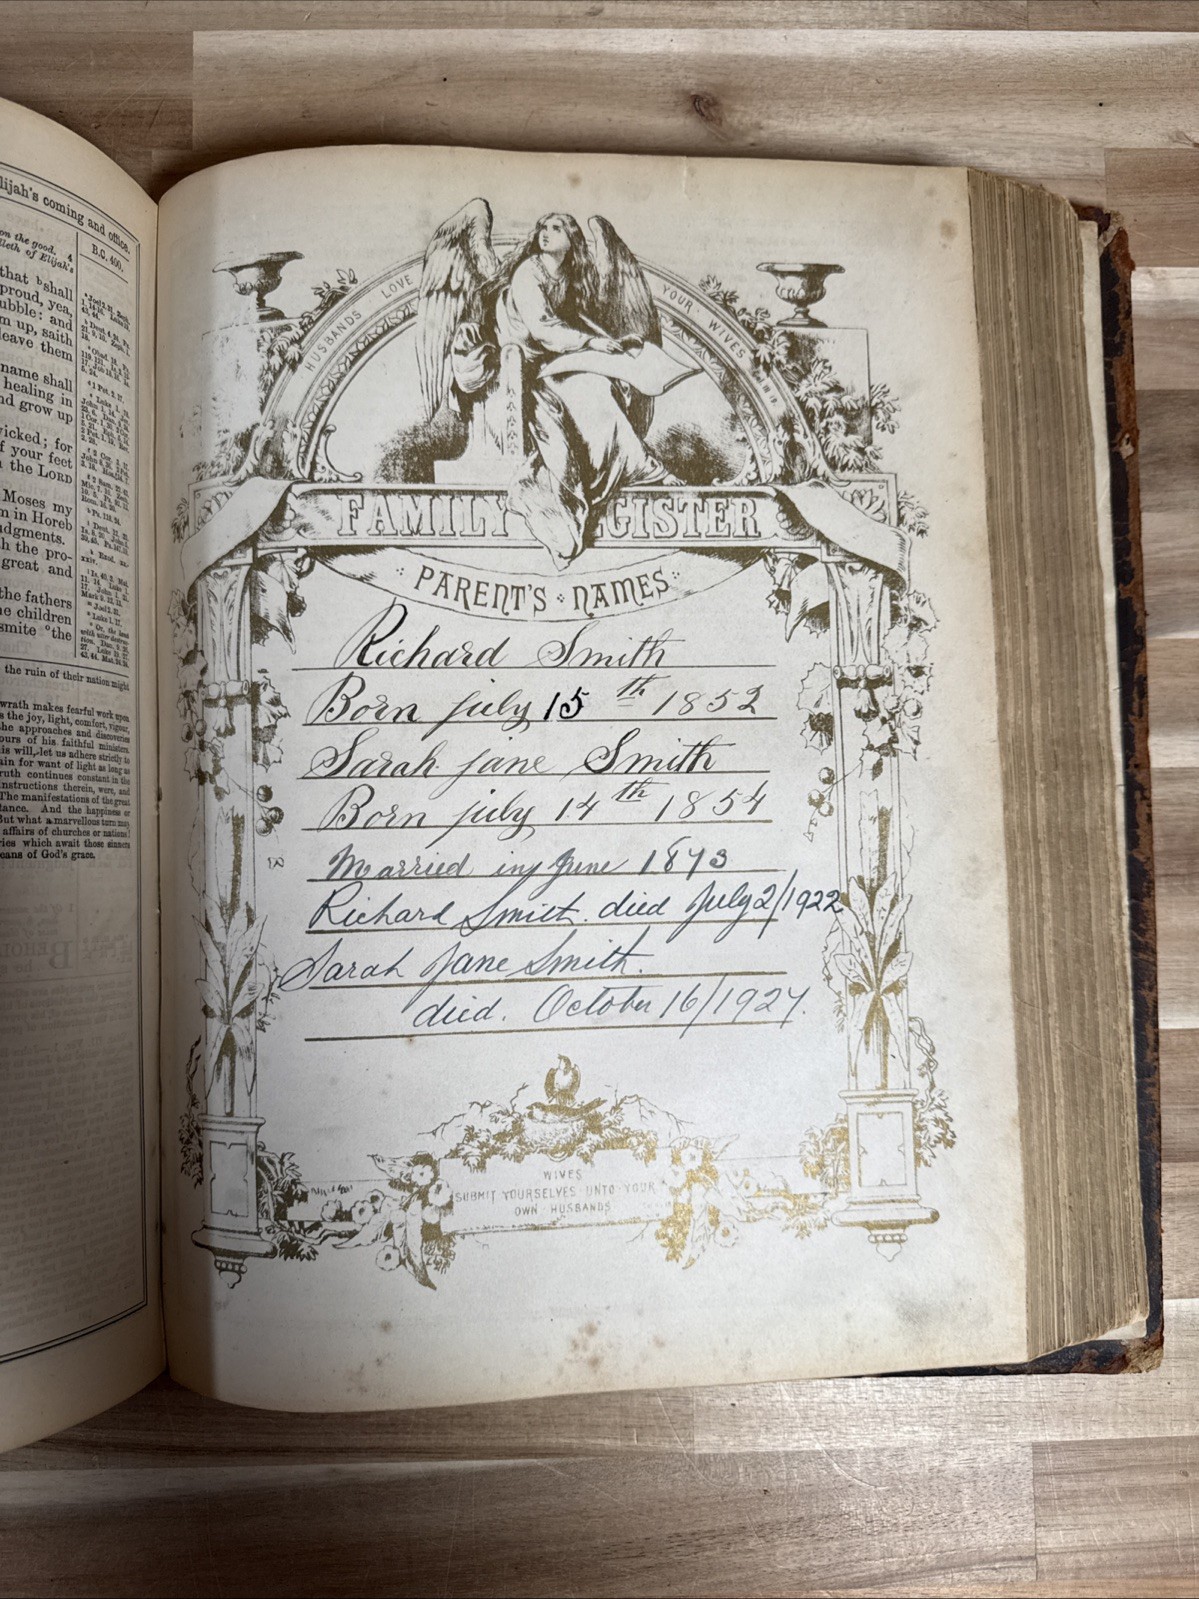 lijah's coming and office.
on the good.
4
lleth of Elijah's
B.C. 400.
that b shall
proud, yea,
ubble: and
m up, saith
leave them
name shall
healing in
nd grow up
vicked; for
f your feet
the LORD
Moses my
m in Horeb
udgments.
h the pro-
great and
the fathers
he children
smite the
the ruin of their nation might
wrath makes fearful work upon
s the joy, light, comfort, vigour,
he approaches and discoveries
ours of his faithful ministers.
is will, let us adhere strictly to
ain for want of light as long as
ruth continues constant in the
instructions therein, were, and
The manifestations of the great
tance. And the happiness or
But what a marvellous turn may
affairs of churches or nations!
ries which await those sinners
eans of God's grace.
HUSBANDS LOVE YOUR WIVES
FAMILY GISTER
PARENT'S NAMES
Richard Smith
Born july 15th 1852
Sarah jane Smith
Born july 14th 1854
Married in June 1873
Richard Smith. died July 2/1922
Sarah Jane Smith.
died. October 16/1927.
WIVES
SUBMIT YOURSELVES UNTO YOUR
OWN HUSBANDS